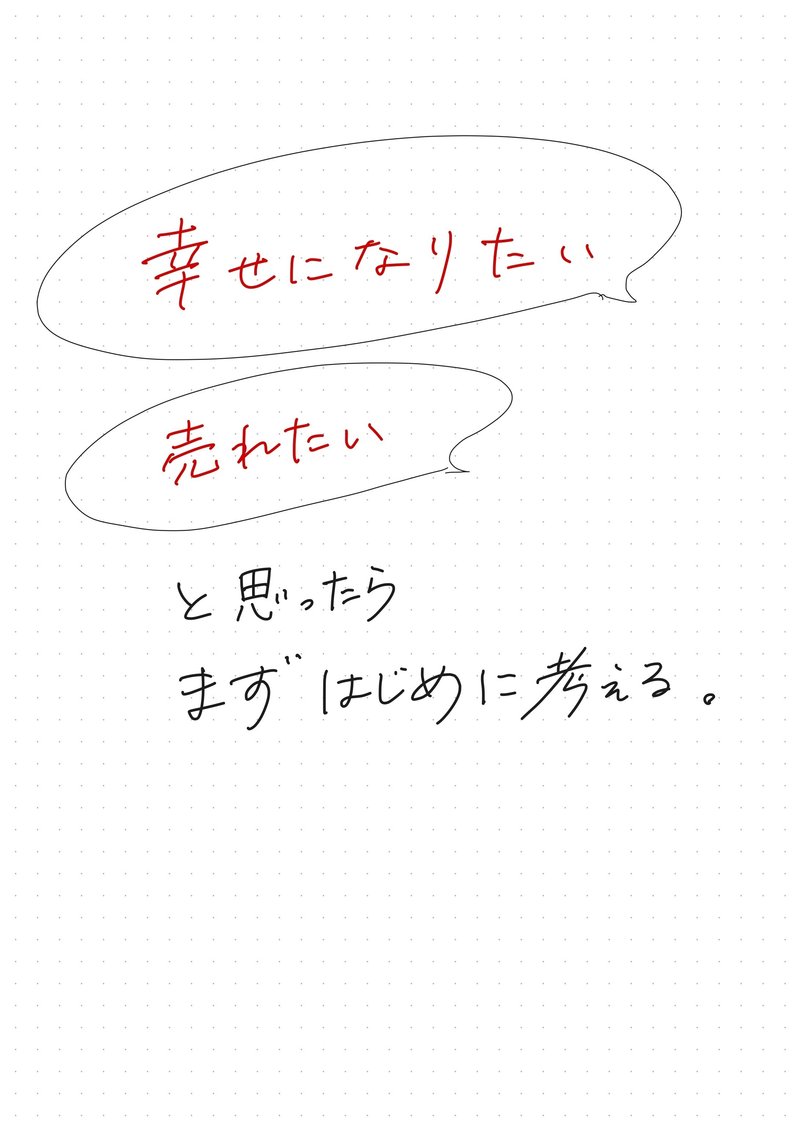 幸せになりたい
売れたい
と思ったら
まずはじめに考える。